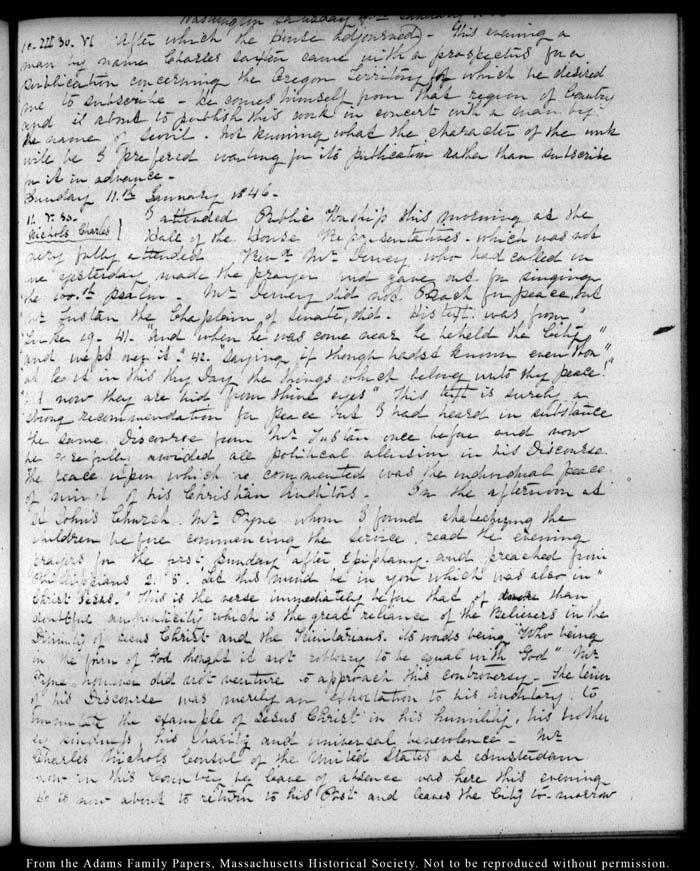 Washington Saturday 10th January 1846
10. III 30. VI After which the House adjourned) - This evening a
man by name Charles Saxton came with a prospectus for a
publication concerning the Oregon Territory for which he desired
me to subscribe - He comes himself from that region of Country
and is about to publish this work in concert with a man by
the name of Not knowing what the character of the work
will be I preferred waiting for its publication rather than subscribe
for it in advance -
Sunday 11.th January 1846.
11. V. 30.
Nichols Charles} I attended Public Worship this morning at the
Hall of the House Representatives - which was not
very fully attended Revd Mr Dewey who had called on
me yesterday made the prayer and gave out for singing
the 100.th psalm - Mr Dewey did not Preach for peace, but
Mr Tustan the Chaplain of Senate, did. His text was from
Luke 19. 41. "And when he was come near he beheld the City"
"and wept over it." 42. "Saying if though hadst known even thou"
at least in this thy Day the things which belong unto thy peace!"
but now they are hid from thine eyes" This text is surely a
strong recommendation for peace but I had heard in substance
the same Discourse from Mr Tustan once before and now
he carefully avoided all political allusion in his Discourse
The peace upon which he commented was the individual peace
of mind of his Christian Auditors - In the afternoon at
St John's Church. Mr Pyne whom I found chatechizing the
children before commencing the service, read the evening
prayers for the first Sunday after Epiphany and preached from
Philippians 2. 5. Let this mind be in you which was also in"
Christ Jesus." This is the verse immediately before that of more than
doubtful authenticity which is the great reliance of the Believers in the
Divinity of Jesus Christ and the Trinitarians. its words being "Who being
in the form of God thought it not robbery to be equal with God" Mr
Pyne however did not venture to approach this controversy - The tenor
of his Discourse was merely an exhortation to his Auditory to
immitate the example of Jesus Christ in his humility, his brother
ly kindness his Charity and universal benevolence - Mr
Charles Nichols Consul of the United States at Amsterdam
now in this Country by leave of absence was here this evening
He is now about to return to his Post and leaves the City to-morrow
From the Adams Family Papers, Massachusetts Historical Society. Not to be reproduced without permission.